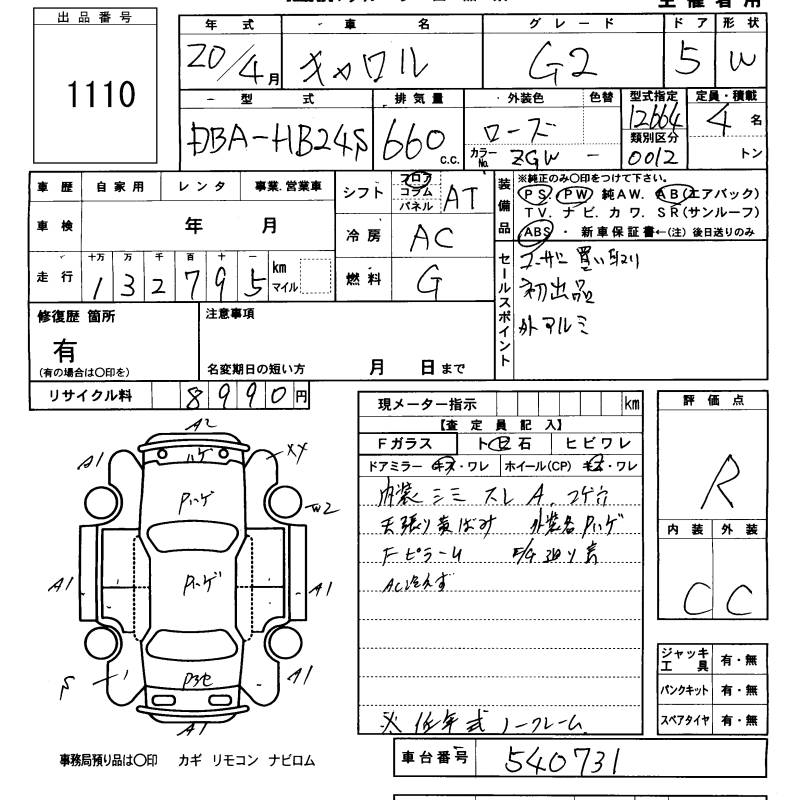 主催者用
出品番号
1110
年式 車名 グレード ドア 形状
20/4月 キャロル G2 5 W
型式 排気量 外装色 色替 型式指定 定員・積載
DBA-HB24S 660 c.c. ローズ 12664 4名
類別区分
カラーNo. ZGW - 0012 トン
車歴 自家用 レンタ 事業.営業車
シフト フロア コラム パネル AT
装備品
※純正のみ〇印をつけて下さい。
PS. PW. 純AW. AB(エアバック)
TV. ナビ. カワ. SR(サンルーフ)
ABS ・ 新車保証書←(注) 後日送りのみ
車検 年 月
冷房 AC
走行 十万 万 千 百 十 一
132795 km マイル
燃料 G
セールスポイント
ユーザー買い取り
初出品
外アルミ
修復歴 箇所
有
(有の場合は〇印を)
注意事項
名変期日の短い方 月 日まで
リサイクル料 8990円
現メーター指示 km
【査定員記入】
Fガラス トビ石 ヒビワレ
ドアミラー キズ・ワレ ホイール(CP) キズ・ワレ
内装シミ スレ A. コゲ穴
天張り黄ばみ 外装各Pハゲ
Fピラーム
AC冷えず
※低年式 ノークレーム
評価点
R
内装 外装
C C
A2
ハゲ
A1 XX
Pハゲ
W2
A1 Pハゲ A1
S A1
A1
ジャッキ工具 有・無
パンクキット 有・無
スペアタイヤ 有・無
事務局預り品は〇印 カギ リモコン ナビロム
車台番号 540731